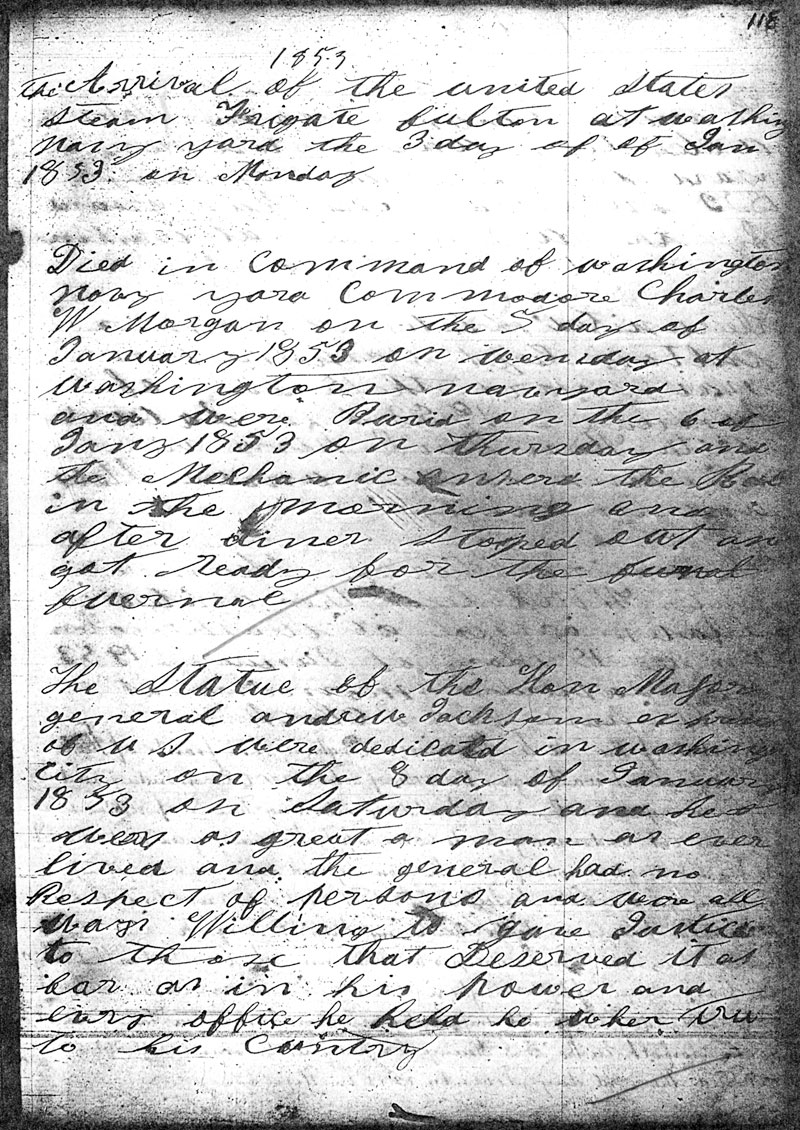 118
1853
the Arrival of the united States
Steam Frigate fulton at washing
Navy yard the 3 day of of Jan
1853 on Monday
Died in Command of washington
Navy yard Commodore Charles
W Morgan on the 5 day of
January 1853 on wensday at
washington navy yard
and were Burid on the 6 of
Jany 1853 on thursday and
the Mechanic anserd the Roll
in the morning and
after diner stoped out an
got ready for the funal
fuernal
The Statue of the Hon Major
general andrew Jackson ex
of U S were dedicatd in washing
City on the 8 day of January
1853 on Saturday and he
was as great a man as ever
lived and the general had no
Respect of persons and were all
ways Willing to gave Justice
to those that Deserved it as
far as in his power and
evry office he held he wher tru
to his Contry